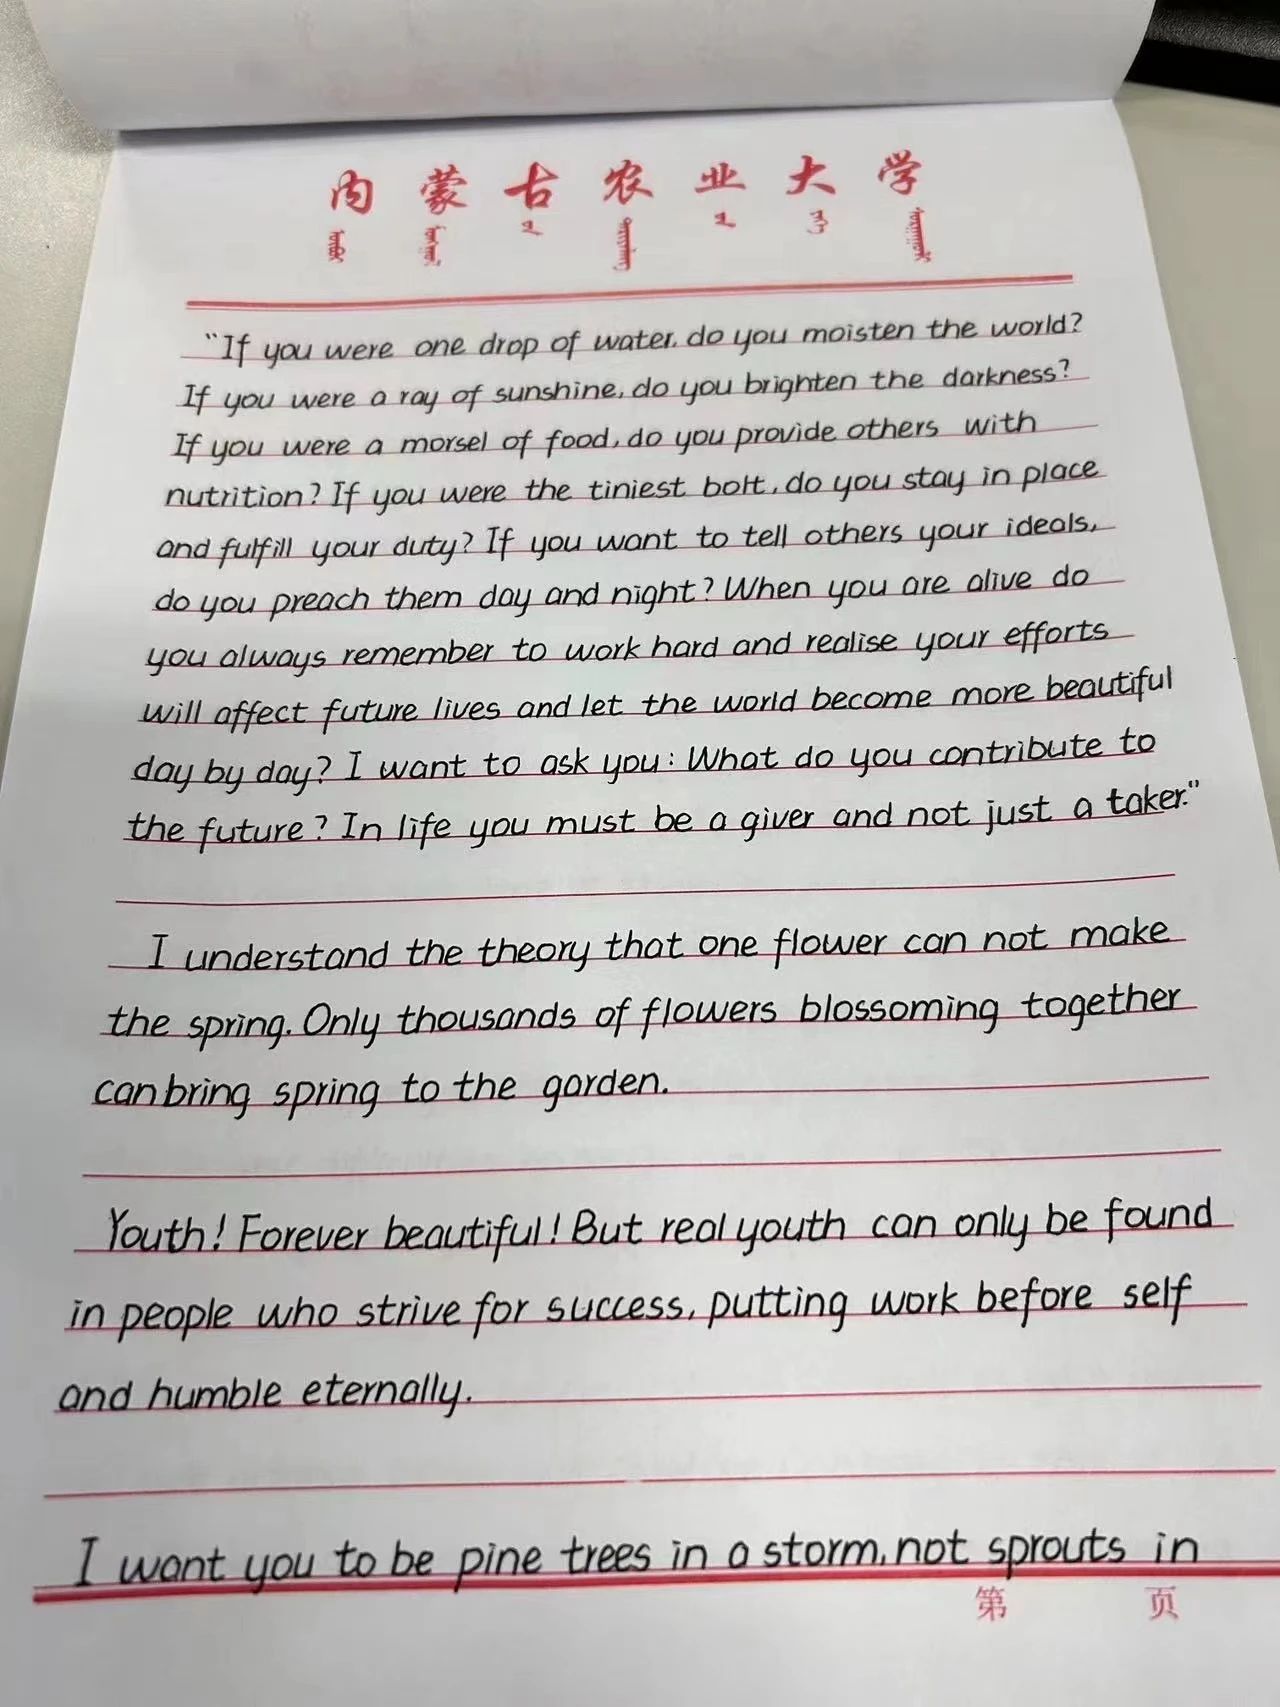 内蒙古农业大学
"If you were one drop of water, do you moisten the world?
If you were a ray of sunshine, do you brighten the darkness?
If you were a morsel of food, do you provide others with
nutrition? If you were the tiniest bolt, do you stay in place
and fulfill your duty? If you want to tell others your ideals,
do you preach them day and night? When you are alive do
you always remember to work hard and realise your efforts
will affect future lives and let the world become more beautiful
day by day? I want to ask you: What do you contribute to
the future? In life you must be a giver and not just a taker."
I understand the theory that one flower can not make
the spring. Only thousands of flowers blossoming together
can bring spring to the garden.
Youth! Forever beautiful! But real youth can only be found
in people who strive for success, putting work before self
and humble eternally.
I want you to be pine trees in a storm, not sprouts in
第 页